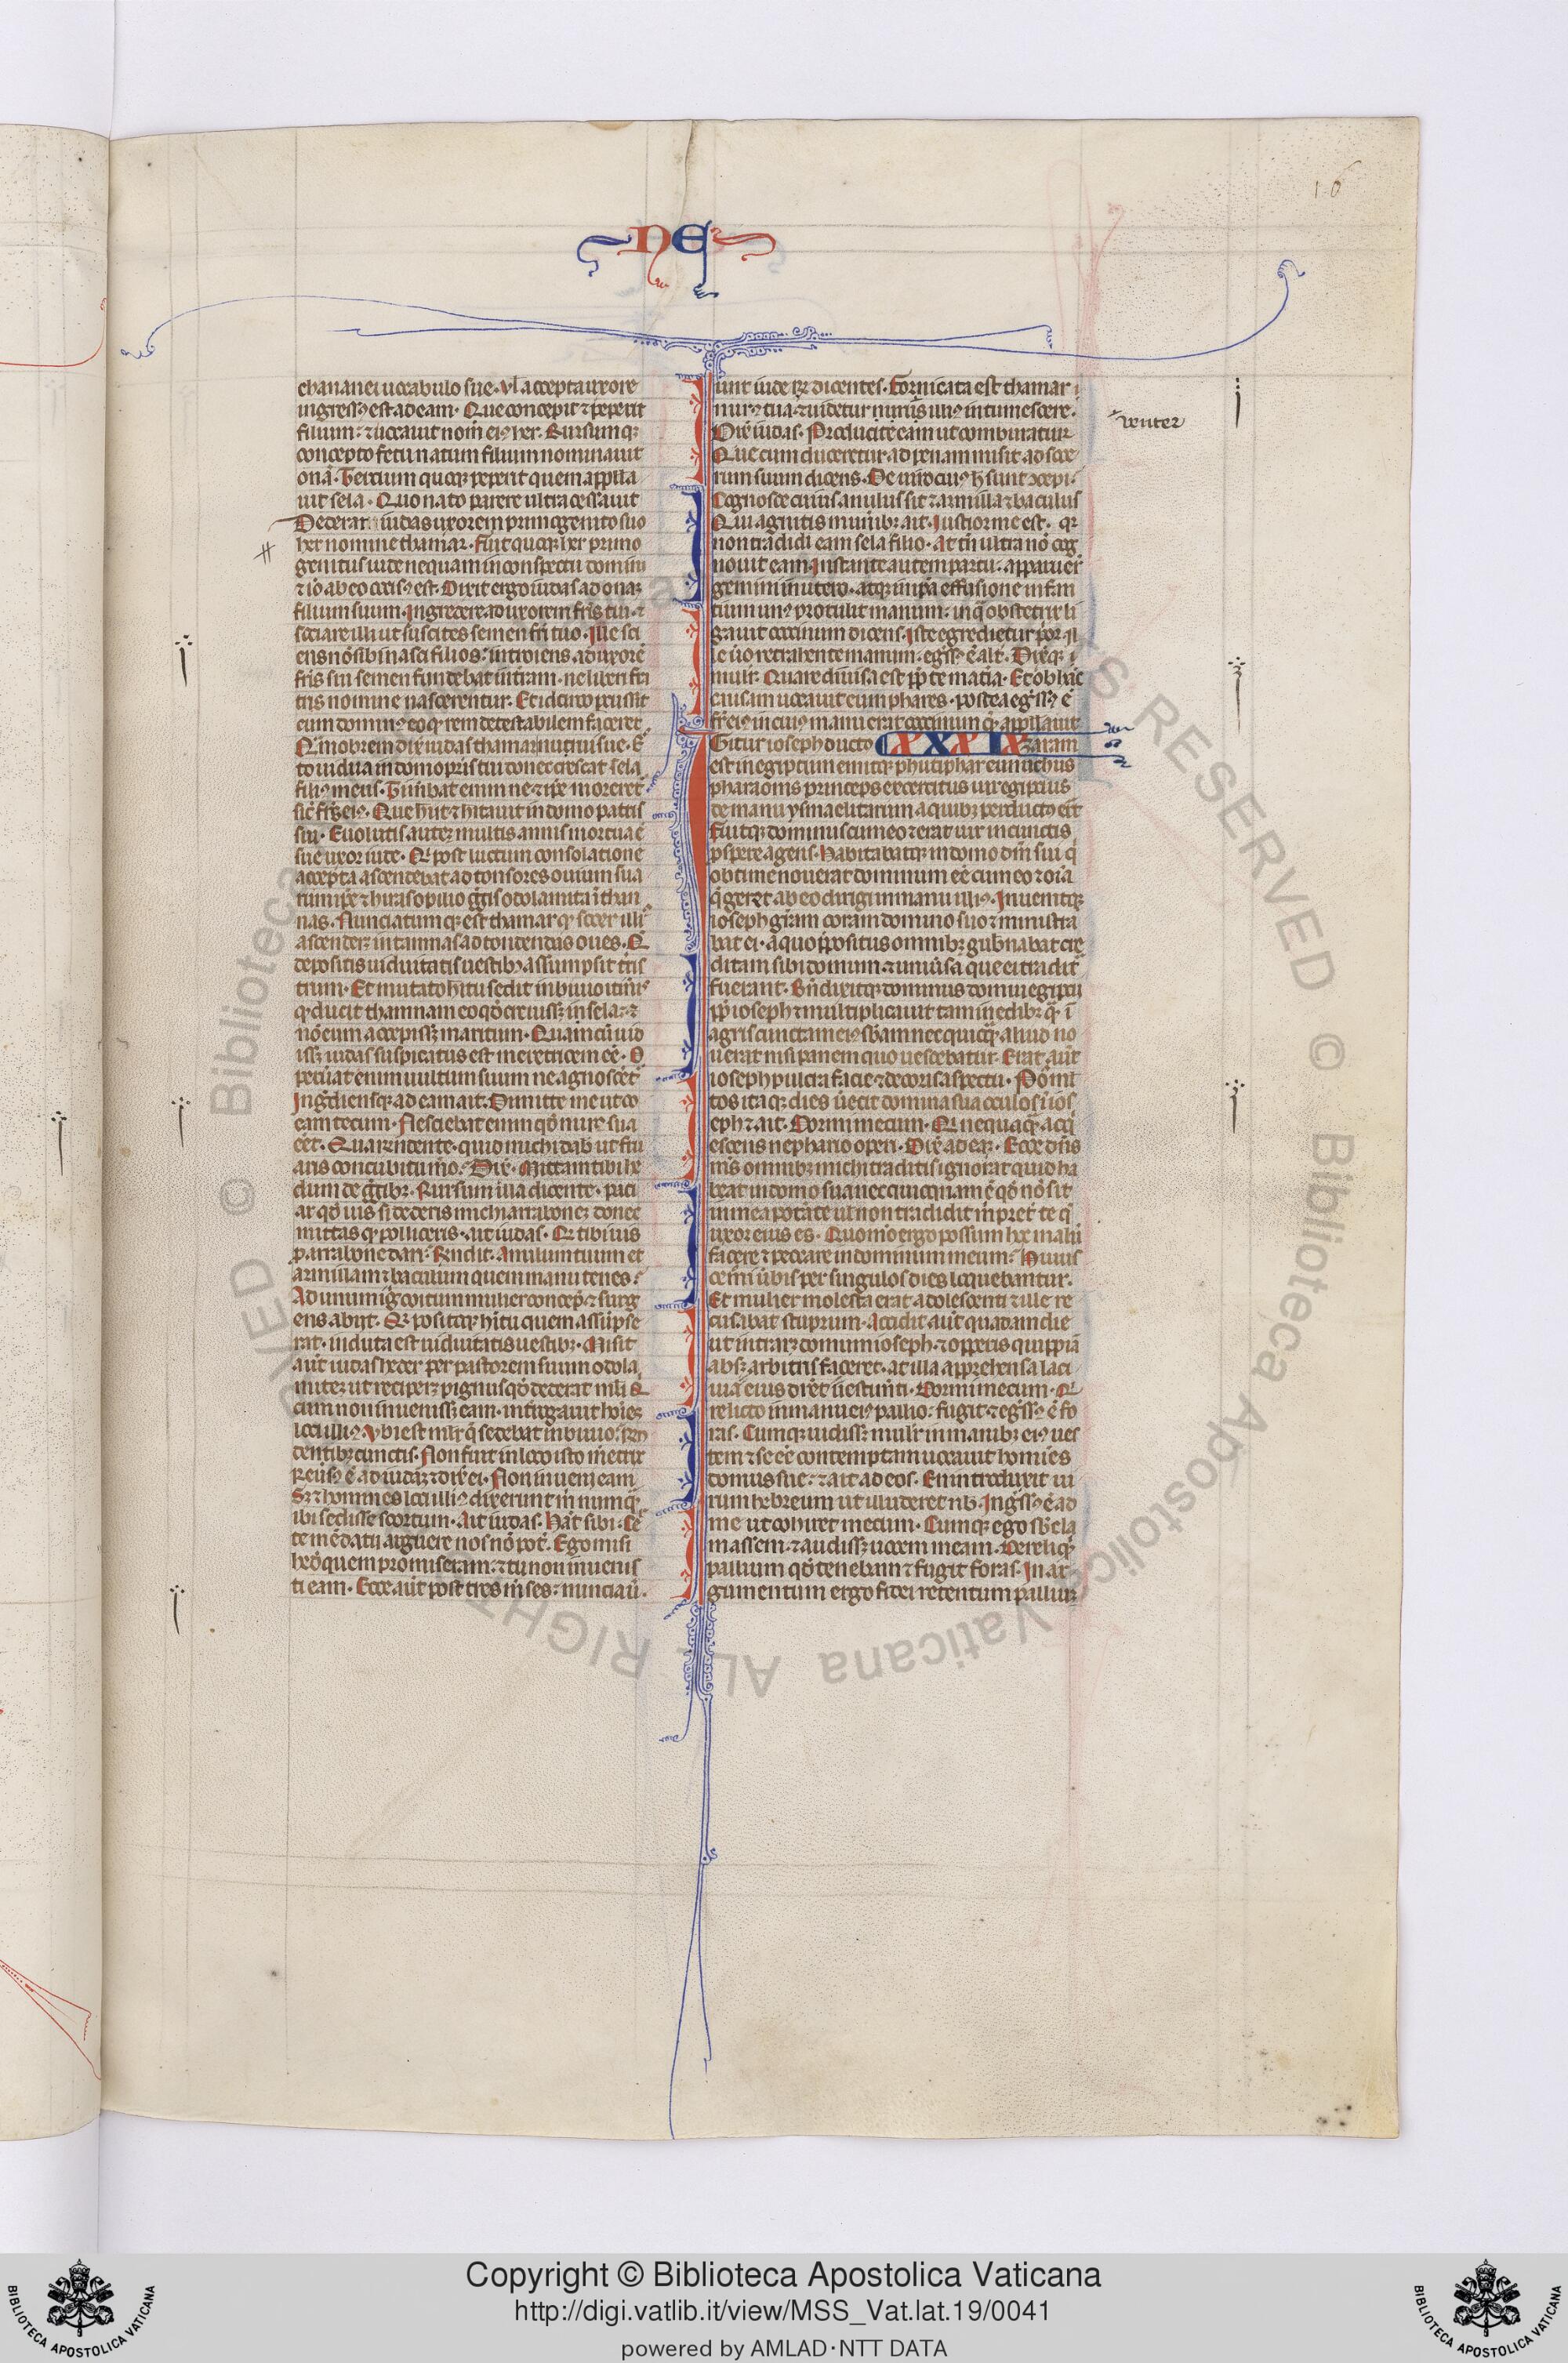 16
NE
chananei uocabulo sue. Vl accepta uxore
ingressꝰ est ad eam. Que concepit ⁊ peperit
filium: ⁊ uocauit nom̄ eiꝰ her. Rursumqꝫ
concepto fetu natum filium nominauit
onā. Tercium quoqꝫ peperit quem appella
uit sela. Quo nato parere ultra cessauit
Dederat iudas uxorem primogenito suo
her nomine thamar. Fuit quoqꝫ her primo
genitus iude nequam in conspectu domini
⁊ iō ab eo occisꝰ est. Dixit ergo iudas ad onaꝫ
filium suum. Ingredere ad uxorem fr̄is tui. ⁊
sociare illi ut suscites semen fr̄i tuo. Ille sci
ens nō sibi nasci filios: introiens ad uxorē
fr̄is sui semen fundebat in terram. ne liberi fra
tris nomine nascerentur. Et idcirco percussit
eum dominꝰ eo qꝫ rem detestabilem faceret.
Qm̄obrem dix̄ iudas thamar nurui sue. E
sto uidua in domo pr̄is tui donec crescat sela
filiꝰ meus. Timebat enim ne ⁊ ip̄e moreret᷑
sic̄ fr̄s eiꝰ. Que h̄iit ⁊ hitauit in domo patris
sui. Euolutis autem multis annis mortua ē
sue uxor iude. Qꝫ post luctum consolatione
accepta ascendebat ad tonsores ouium sua
rum ip̄e ⁊ hiras opilio ḡgis odolamita ī tham
nas. Nunciatumqꝫ est thamar qꝫ socer illiꝰ
ascenderꝫ in tamnas ad tondendas oues. Q
depositis uiduitatis uestibꝫ assumpsit tr̄is
trum. Et mutato hītu sedit in biuio itin̄is
qꝫ ducit thamnam eo qd̄ creuissꝫ in sela: ⁊
nō eum accepissꝫ maritum. Quam cū uid
issꝫ iudas suspicatus est meretricem eē. O
peruerat enim uultum suum ne agnoscet᷑
Ingrediensqꝫ ad eam ait. Dimitte me ut co
eam tecum. Nesciebat enim qd̄ nurꝰ sua
eēt. Qua rn̄dente. quid michi dab̄ ut fru
aris concubitu m̄o: Dix̄. Mittam tibi he
dum de ḡgibꝫ. Rursum illa dicente. paci
ar qd̄ uis si dederis michi arraboneꝫ donec
mittas qꝫ polliceris. ait iudas. Qꝫ tibi uis
p̄ arrabone dari: Rn̄dit. Anulum tuum et
armillam ⁊ baculum quem manu tenes.
Ad unum iḡ coitum mulier concep̄. ⁊ surg
ens abijt. Qꝫ positoqꝫ hītu quem assūpse
rat. induta est uiduitatis uestibꝫ. Misit
aūt iudas hedꝫ per pastorem suum odola
miteꝫ ut reciperꝫ pignus qd̄ dederat mli Q
cum non inuenissꝫ eam. int̄rogauit hoīes
loci illiꝰ. Vbi est mlr̄ q̄ sedebat in biuio: rn̄
dentibꝫ cunctis. Non fuit in loco isto m̄etrix
Reūsꝰ ē ad iudā ⁊ dix̄ ei. Non inueni eam
Sꝫ ⁊ homines loci illiꝰ dixerunt m̄ nunqꝫ
ibi sedisse scortum. Ait iudas. Hat̄ sibi. Ce
te mēdatij arguere nos nō pot̄. Ego misi
hedū quem promiseram: ⁊ tu non inuenis
ti eam. Ecce aūt post tres m̄ses: nunciaū.
runt iude dicentes. Fornicata est thamar
nurꝰ tua. ⁊ uidetur nimis illiꝰ intumescere.
uenter
Dix̄ iudas. Producite eam ut comburatur
Que cum duceretur ad penam misit ad soce
rum suum dicens. De uiro cuiꝰ h̄ sunt ꝯcepi.
Cognosce cuius anulus sit ⁊ armilla ⁊ baculus
Qui agnitis munibꝫ ait. Iustior me est. qꝫ
non tradidi eam sela filio. At tn̄ ultra nō cog
nouit eam. Instante autem partu: apparuer̄
gemini in utero. atqꝫ in ip̄a effusione infan
tium unꝰ protulit manum: in q̄ obstetrix li
gauit coccinum dicens. Iste egredietur p̄or. Il
le ūo retrahente manum. egssꝰ ē alt̄. Dix̄qꝫ
mulr̄. Quare diuisa est pp̄ te maꝑia. Et ob hāc
causam uocauit eum phares. postea egssꝰ ē
fr̄ eiꝰ in cuiꝰ manu erat coccinum qꝫ appellauit
Igitur ioseph ductꝰ XXXIX zaram
est in egiptum emitqꝫ phutiphar eunuchus
pharaonis princeps excercitus uir egiptius
de manu ysmaelitarum a quibꝫ perductꝰ erāt
Fuitqꝫ dominus cum eo ⁊ erat uir in cunctis
ꝓspere agens. Habitabatqꝫ in domo dn̄i sui q̄
obtime nouerat dominum eē cum eo ⁊ oīa
q̄ gereret ab eo dirigi in manu illiꝰ. Inuenitqꝫ
ioseph gr̄am coram domino suo ⁊ ministra
bat ei. a quo p̄positus omnibꝫ gub̄nabat cre
ditam sibi domum. ⁊ uniūsa que ei tradit̄
fuerant. Bn̄dixitqꝫ dominus domui egiptij
pp̄ ioseph ⁊ multiplicauit tam in edibꝫ qꝫ ī
agris cunctam eiꝰ sb̄am nec quicqꝫ aliud no
uerat nisi panem quo uescebatur. Erat aūt
ioseph pulcra facie ⁊ decorus aspectu. Po ml̄
tos itaqꝫ dies iecit domina sua oculos ī ios
eph ⁊ ait. Dormi mecum. Qꝫ nequaqꝫ acq̄
escens nephario operi. Dix̄ ad eaꝫ. Ecce dn̄s
m̄s omnibꝫ michi traditis ignorat quid ha
beat in domo sua nec quicquam ē qd̄ nō sit
in mea potāte ul̄ non tradidit m̄ pret̄ te q̄
uxor eius es. Quom̄o ergo possum hoc malū
facere ⁊ peccare in dominum meum: Huius
cem̄i ūbis per singulos dies loquebantur.
Et mulier molesta erat adolescenti ⁊ ille re
cusabat stuprum. Accidit aūt quadam die
ut intrarꝫ domum ioseph. ⁊ operis quippiā
absꝫ arbitris faceret. at illa apprehensa laci
nia eius dix̄et uestim̄ti. Dormi mecum. Q
relicto in manu eiꝰ pallio: fugit ⁊ egssꝰ ē fo
ras. Cumqꝫ uidissꝫ mulr̄ in manibꝫ eiꝰ ues
tem ⁊ se eē contemptam uocauit homīes
domus sue: ⁊ ait ad eos. En introduxit ui
rum hebreum ut illuderet nb̄. Ingssꝰ ē ad
me ut cohiret mecum. Cumqꝫ ego sb̄ cla
massem. ⁊ audissꝫ uocem meam. Dereliqꝫ
pallium qd̄ tenebam ⁊ fugit foras. In ar
gumentum ergo fidei retentum palliuꝫ
Copyright © Biblioteca Apostolica Vaticana
http://digi.vatlib.it/view/MSS_Vat.lat.19/0041
powered by AMLAD·NTT DATA